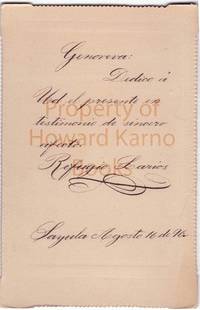 Genoveva:
Dedico á
Ud el presente en
testimonio de sincero
afecto.
Refugio Larios
Sayula Agosto 16 de 96
Property of
Howard Karno
Books